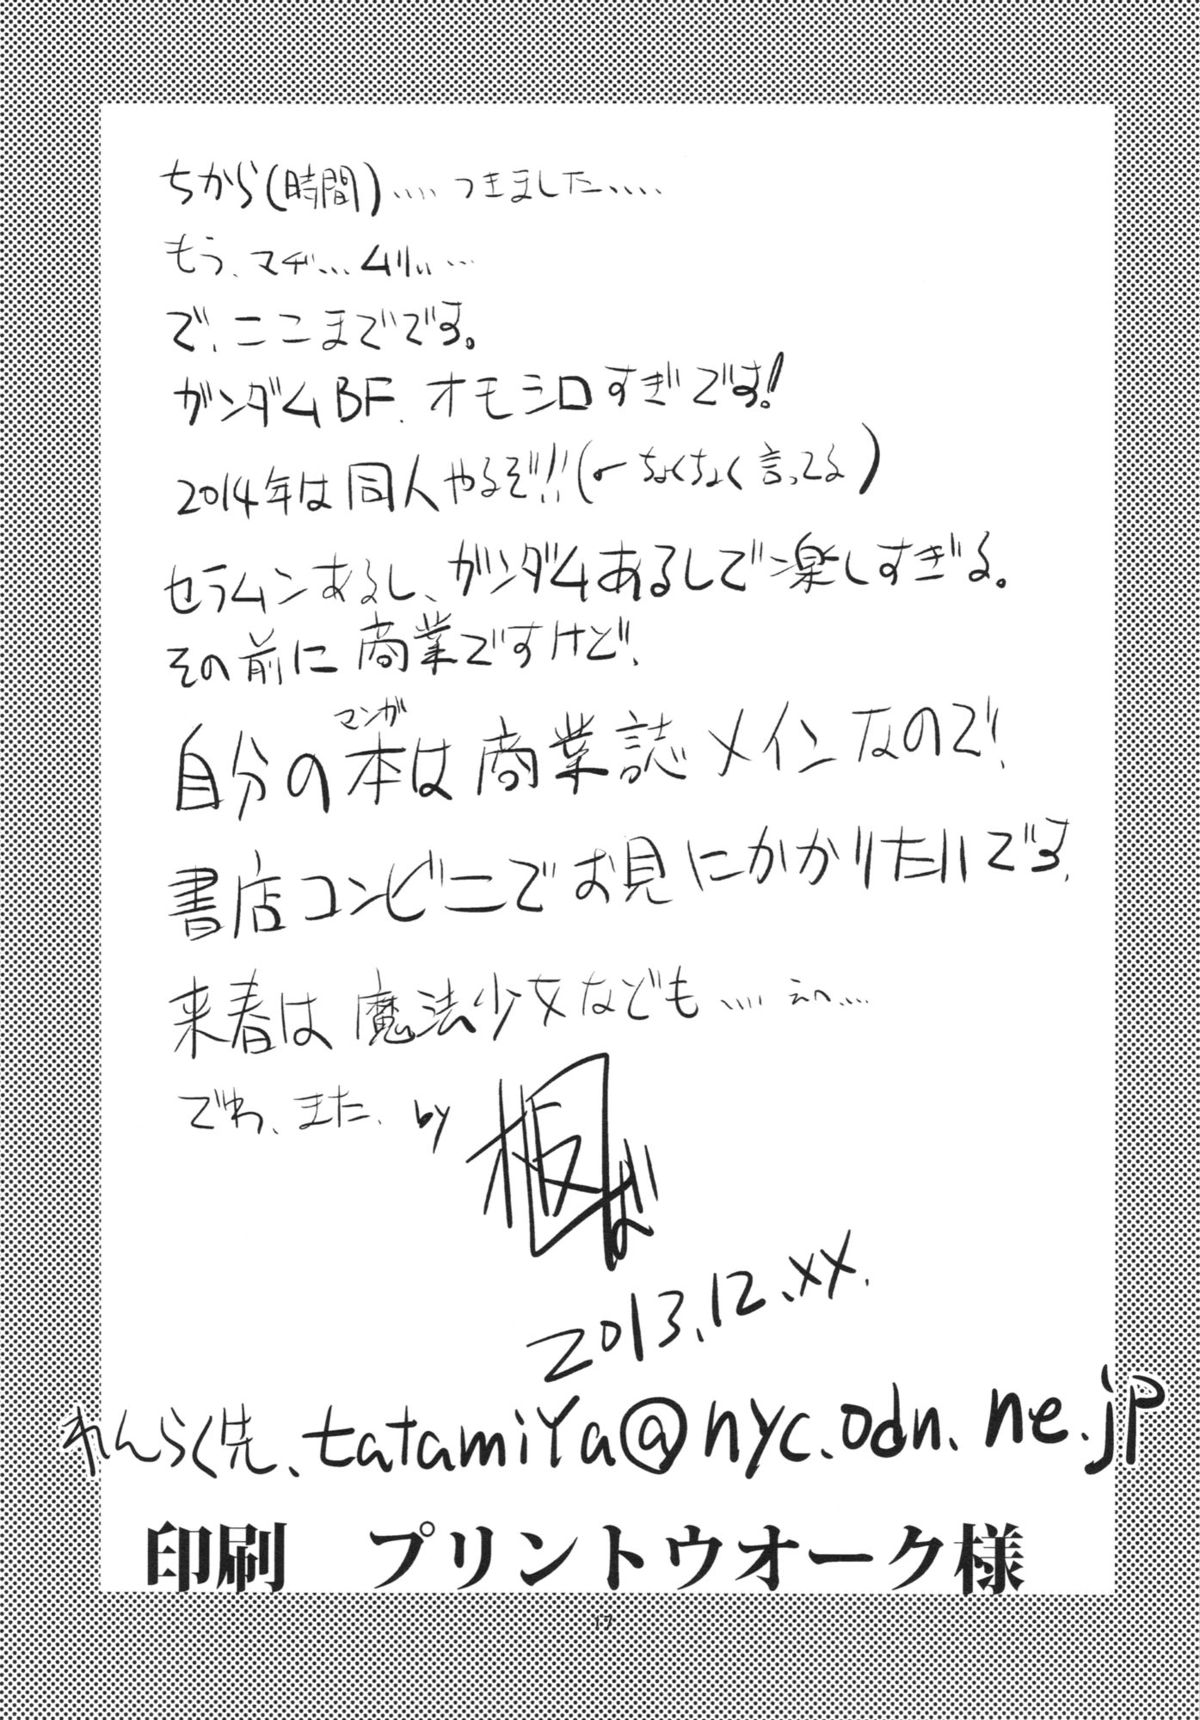 ちから(時間)‥‥つきました‥‥
もう、マヂ…ムリぃ…
で、ここまでです。
ガンダムBF、オモシロすぎです!
2014年は同人やるぞ!!(←ちょくちょく言ってる)
セラムンあるし、ガンダムあるしで楽しすぎる。
その前に商業ですけど!
マンガ
自分の本は商業誌メインなので!
書店コンビニでお見にかかりたいです、
来春は魔法少女なども‥‥えへ‥‥
でわ、また、by
板ば
2013.12.XX.
れんらく先、tatamiYa@nyc.odn.ne.jp
印刷 プリントウオーク様
17